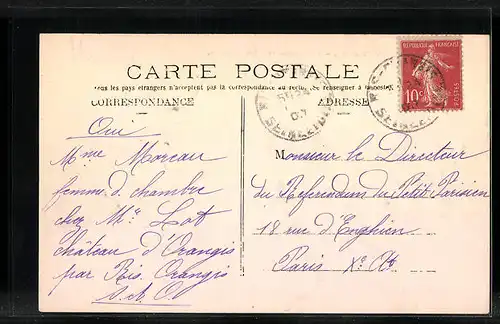 CARTE POSTALE
Tous les pays étrangers n'acceptent pas la correspondance au recto. (Se renseigner à la poste)
CORRESPONDANCE
ADRESSE
REPUBLIQUE FRANÇAISE
10c
POSTES
Oui
Mme Moreau
femme d. chambre
chez Mr Lot
château d'Orangis
par Ris. Orangis
S. et O.
Monsieur le Directeur
du Referendum du Petit Parisien
18 rue d'Enghien
Paris Xe